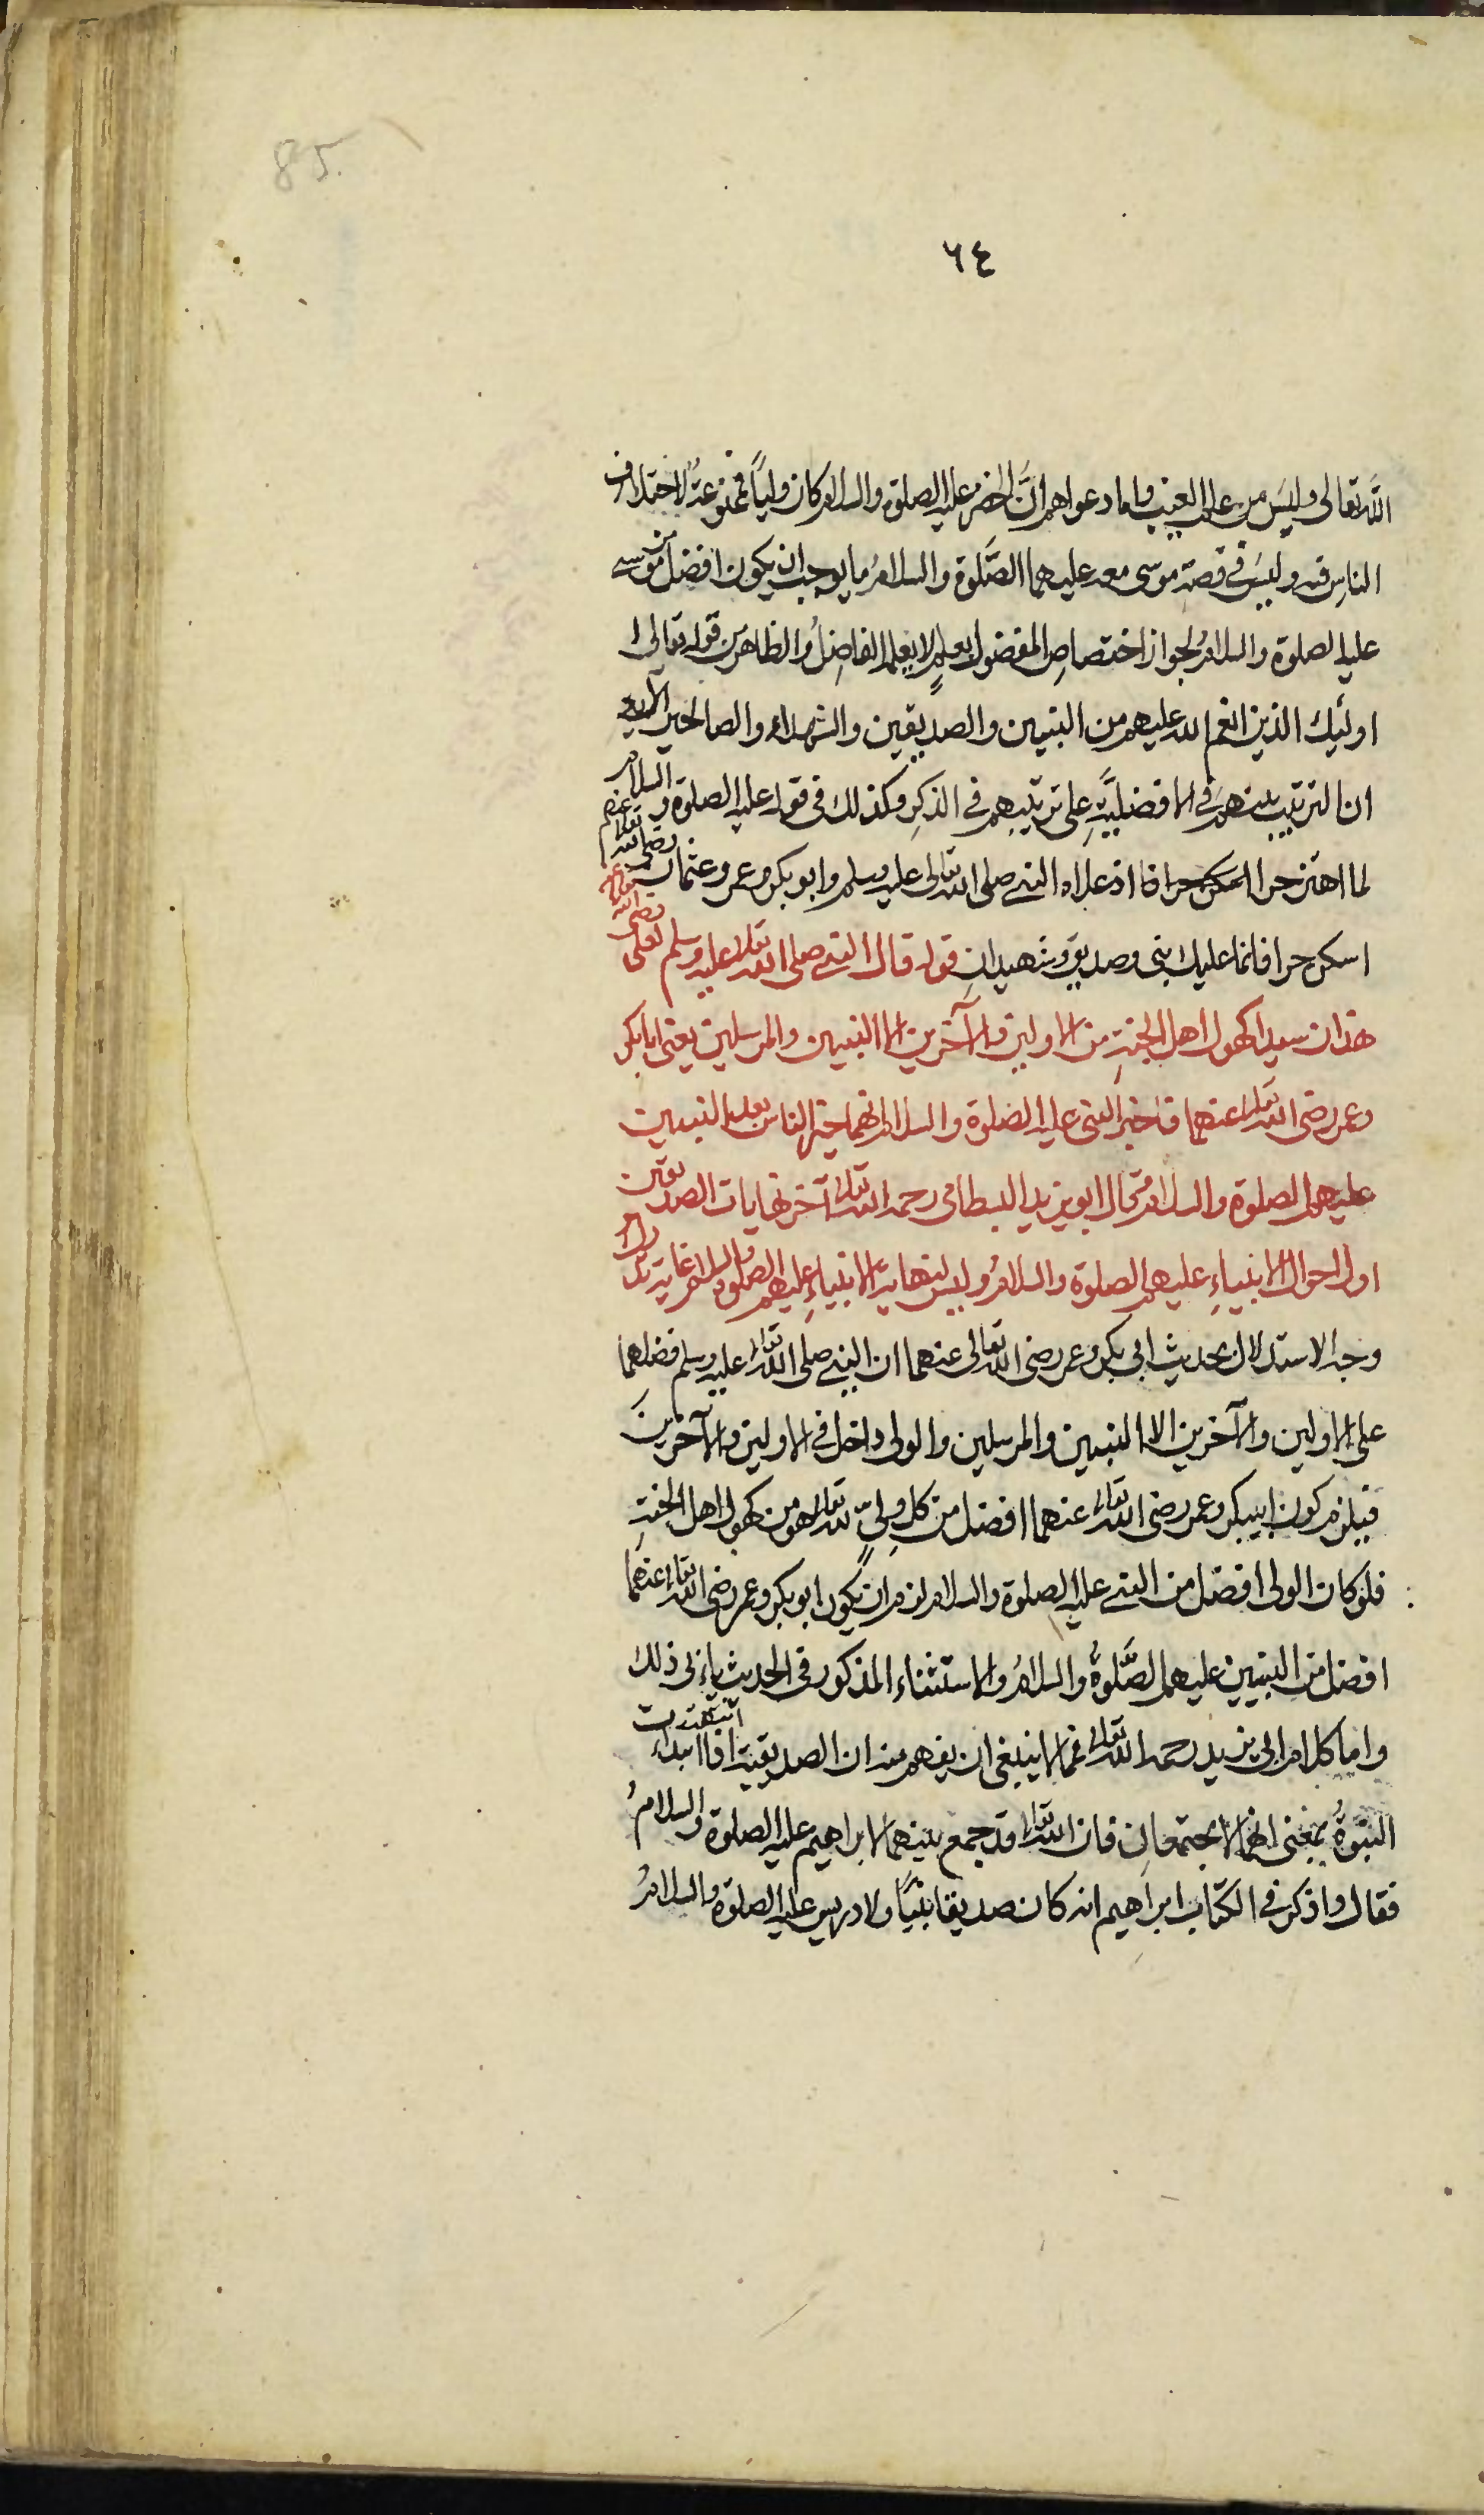 85.
٦٤
الله تعالى وليس من علم الغيب واما دعواهم ان الخضر عليه الصلوة والسلام كان ولياً فممنوعة لاختلاف
الناس فيه وليس في قصة موسى معه عليهما الصَّلوة والسلامُ ما يوجب ان يكون افضل من موسى
عليه الصلوة والسلامُ لجواز اختصاصِ المفضول بعلمٍ لا يعلمه الفاضلُ والظاهر من قوله تعالى
اولئك الذين انعم الله عليهم من النبيين والصديقين والشهداء والصالحين الآية
ان الترتيب بينهم في الافضليَّةِ على ترتيبهم في الذكرِ وكذلك في قوله عليه الصلوة والسلام
لما اهتز حرا اسكن حرا فا اذ علاه النبي صلى الله تعالى عليه وسلم وابو بكر وعمر وعثمان رضى الله تعالى عنهم
اسكن حرا فانما عليك نبى وصديق وشهيدانِ قوله قال النبي صلى الله تعالى عليه وسلم لعلى رضى الله
هذان سيدا كهول اهل الجنةِ من الاولين والآخرين الا النبيين والمرسلين يعنى ابا بكر
وعمر رضى الله تعالى عنهما فاخبر النبى عليه الصلوة والسلام انهما خير الناس بعد النبيين
عليهم الصلوة والسلام وقال ابو يزيد البسطامى رحمه الله تعالى آخر نهايات الصديقين
اول احوال الانبياءِ عليهم الصلوة والسلامُ وليس لنهاية الانبياءِ عليهم الصلوة والسلام غاية تدرك
وجه الاستدلال بحديث ابى بكر وعمر رضى الله تعالى عنهما ان النبي صلى الله تعالى عليه وسلم فضلهما
على الاولين والآخرين الا النبيين والمرسلين والولى داخل في الاولين والآخرينَ
فيلزم كون ابيبكر وعمر رضى الله تعالى عنهما افضل من كل ولىٍّ لله تعالى هو من كهول اهل الجنةِ
فلو كان الولى افضل من النبي عليه الصلوة والسلام لزم ان يكون ابو بكر وعمر رضى الله تعالى عنهمَا
افضل من النبيين عليهم الصَّلوةُ والسلامُ والاستثناء المذكور في الحديث يابى ذلك
واما كلام ابى يزيد رحمه الله تعالى فما لا ينبغى ان يفهم منه ان الصديقية اذا انتهت ابتداءت
النبوةُ بمعنى انهما لا يجتمعانِ فان الله تعالى قد جمع بينهما لابراهيم عليه الصلوة والسلامُ
فقال واذكر في الكتاب ابراهيم انه كان صديقا نبيّاً ولادريس عليه الصلوة والسلامُ